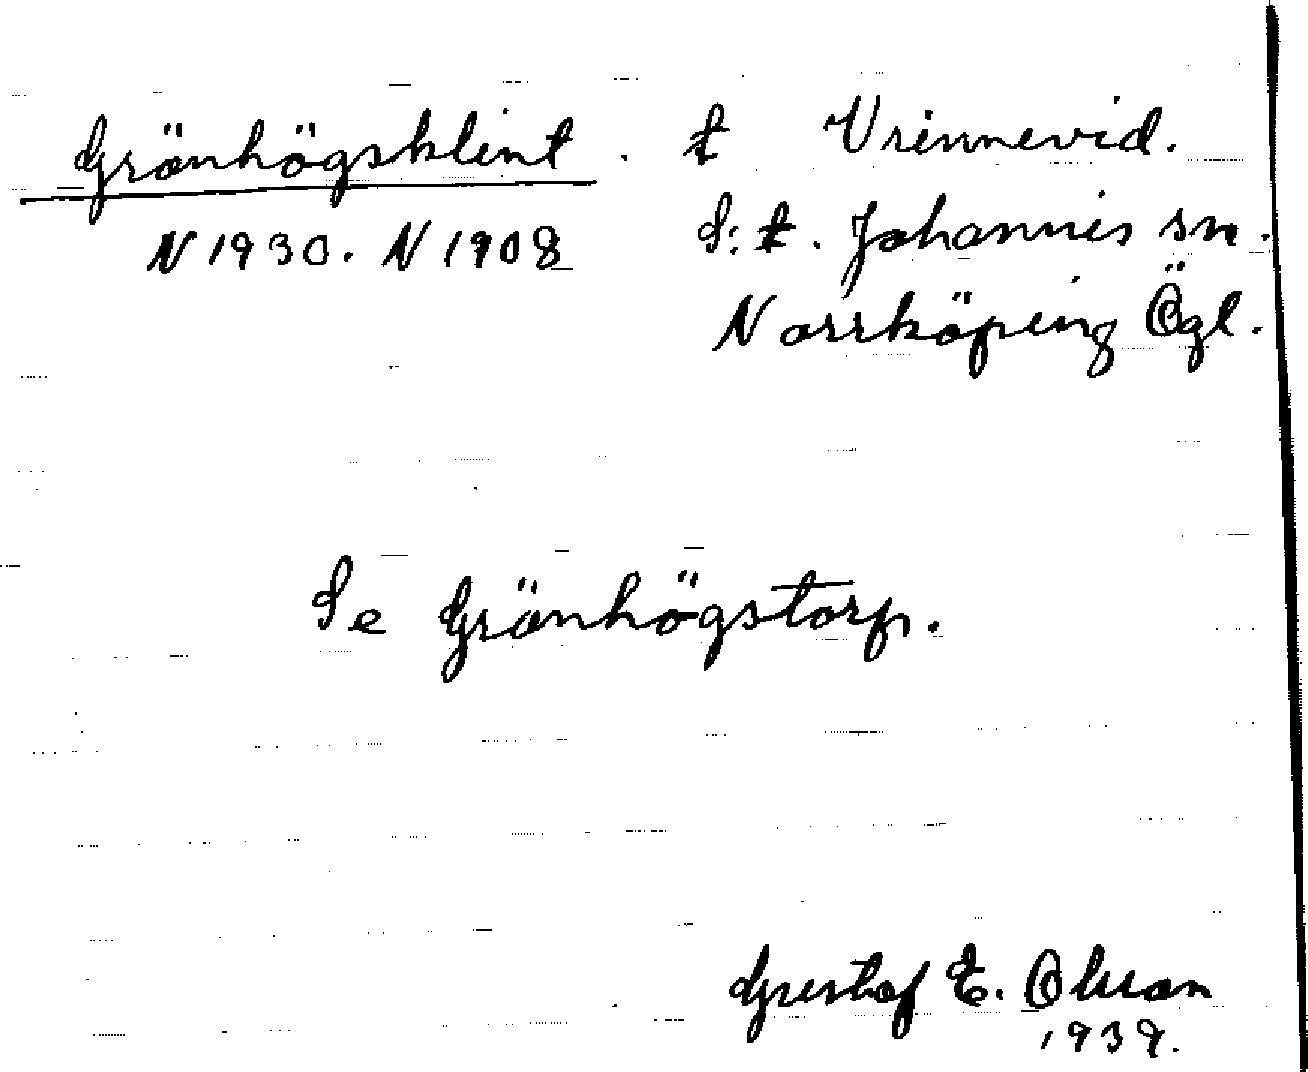 Grönhögsklint . t Vrinnevid.
N 1930. N 1908 S:t. Johannis sn.
Norrköping Ögl.
Se Grönhögstorp.
Gustaf E. Olsson
1939.